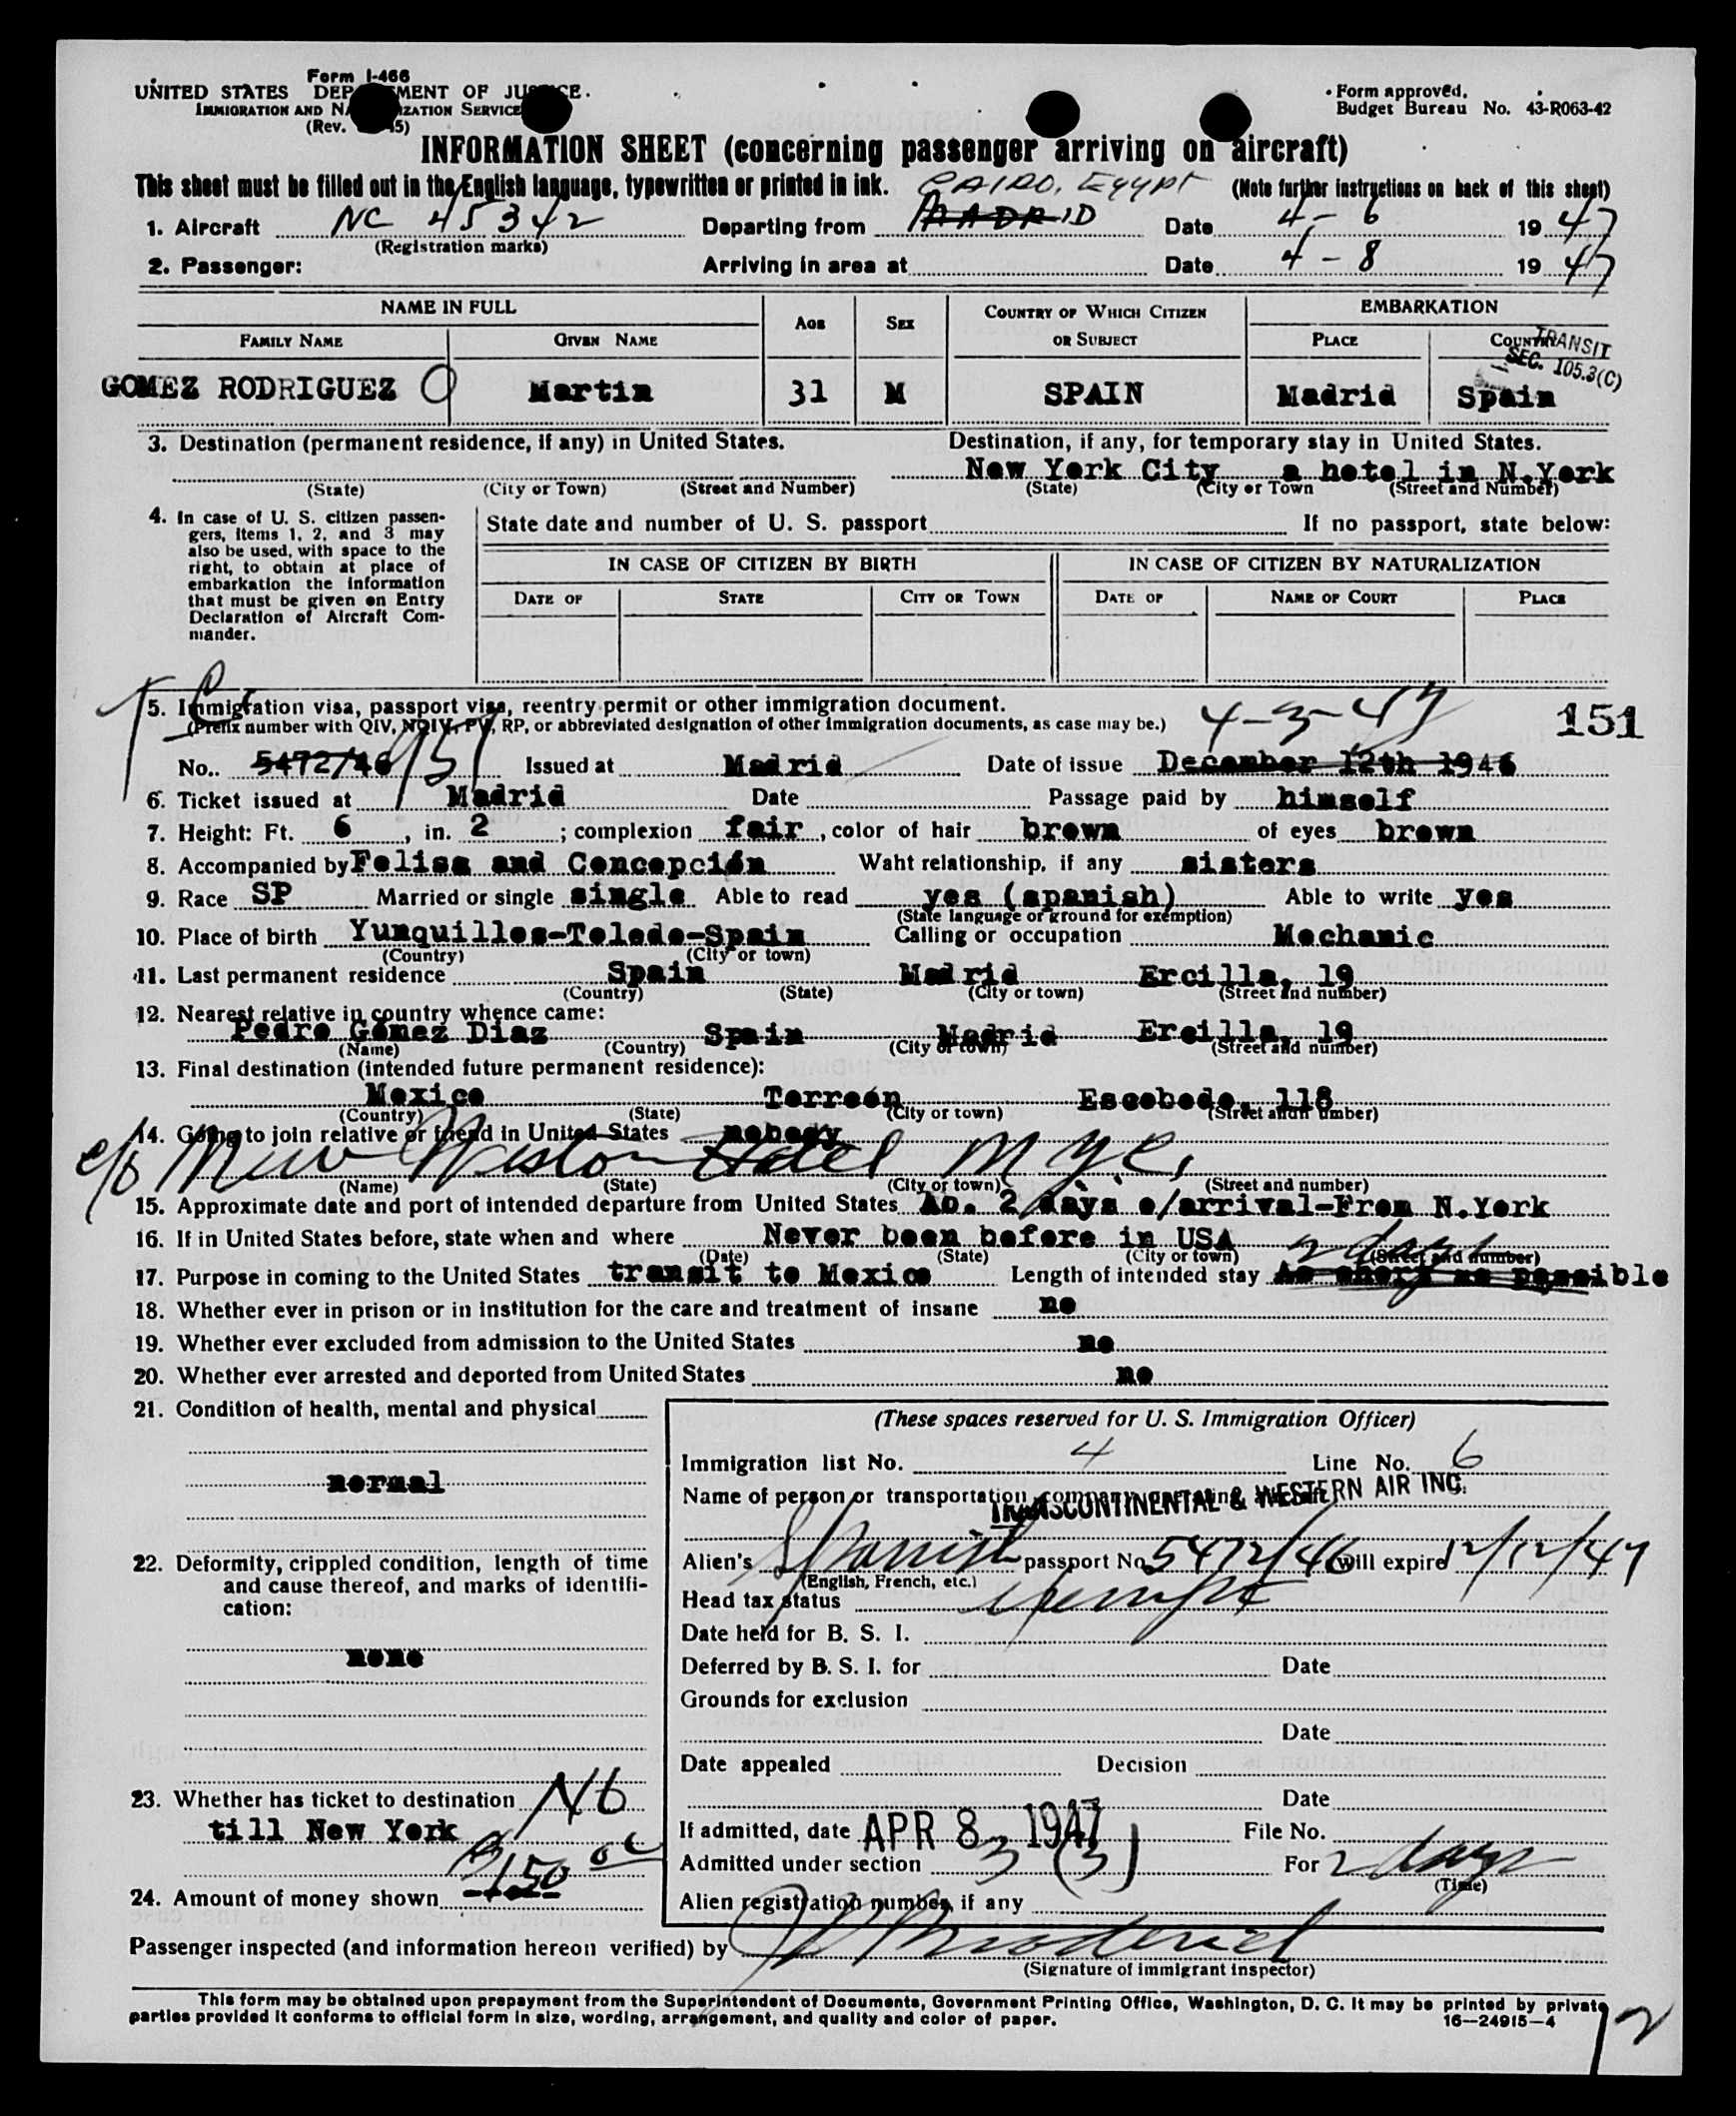 Form I-466
UNITED STATES DEP MENT OF JUS CE.
IMMIGRATION AND NA IZATION SERVICE
(Rev. 5)
Form approved.
Budget Bureau No. 43-R063-42
INFORMATION SHEET (concerning passenger arriving on aircraft)
This sheet must be filled out in the English language, typewritten or printed in ink. CAIRO, Egypt (Note further instructions on back of this sheet)
1. Aircraft NC 45342 Departing from MADRID Date 4-6 1947
(Registration marks)
2. Passenger: Arriving in area at Date 4-8 1947
NAME IN FULL AGE SEX COUNTRY OF WHICH CITIZEN OR SUBJECT EMBARKATION
FAMILY NAME GIVEN NAME PLACE COUNTRY
TRANSIT
SEC. 105.3(C)
GOMEZ RODRIGUEZ Martin 31 M SPAIN Madrid Spain
3. Destination (permanent residence, if any) in United States. Destination, if any, for temporary stay in United States.
New York City a hotel in N.York
(State) (City or Town) (Street and Number) (State) (City or Town (Street and Number)
4. In case of U. S. citizen passen-
gers, items 1, 2, and 3 may
also be used, with space to the
right, to obtain at place of
embarkation the information
that must be given on Entry
Declaration of Aircraft Com-
mander.
State date and number of U. S. passport If no passport, state below:
IN CASE OF CITIZEN BY BIRTH IN CASE OF CITIZEN BY NATURALIZATION
DATE OF STATE CITY OR TOWN DATE OF NAME OF COURT PLACE
5. Immigration visa, passport visa, reentry permit or other immigration document.
(Prefix number with QIV, NQIV, PV, RP, or abbreviated designation of other immigration documents, as case may be.) 4-3-47 151
No. 5472/46 151 Issued at Madrid Date of issue December 12th 1946
6. Ticket issued at Madrid Date Passage paid by himself
7. Height: Ft. 6, in. 2; complexion fair, color of hair brown of eyes brown
8. Accompanied by Felisa and Concepción Waht relationship, if any sisters
9. Race SP Married or single single Able to read yes (spanish) Able to write yes
(State language or ground for exemption)
10. Place of birth Yunquillos-Toledo-Spain Calling or occupation Mechanic
(Country) (City or town)
11. Last permanent residence Spain Madrid Ercilla, 19
(Country) (State) (City or town) (Street and number)
12. Nearest relative in country whence came:
Pedro Gómez Diaz Spain Madrid Ercilla, 19
(Name) (Country) (City or town) (Street and number)
13. Final destination (intended future permanent residence):
Mexico Torreón Escobedo, 118
(Country) (State) (City or town) (Street and number)
14. Going to join relative or friend in United States nobody
c/o New Weston Hotel NYC,
(Name) (State) (City or town) (Street and number)
15. Approximate date and port of intended departure from United States Ab. 2 days o/arrival-From N.York
16. If in United States before, state when and where Never been before in USA
(Date) (State) (City or town) (Street and number)
2 days
17. Purpose in coming to the United States transit to Mexico Length of intended stay As short as possible
18. Whether ever in prison or in institution for the care and treatment of insane no
19. Whether ever excluded from admission to the United States no
20. Whether ever arrested and deported from United States no
21. Condition of health, mental and physical
normal
22. Deformity, crippled condition, length of time
and cause thereof, and marks of identifi-
cation:
none
23. Whether has ticket to destination No
till New York
$150 00
24. Amount of money shown
(These spaces reserved for U. S. Immigration Officer)
Immigration list No. 4 Line No. 6
Name of person or transportation company operating aircraft
TRANSCONTINENTAL & WESTERN AIR INC.
Alien's Spanish passport No. 5472/46 will expire 12/12/47
(English, French, etc.)
Head tax status exempt
Date held for B. S. I.
Deferred by B. S. I. for Date
Grounds for exclusion
Date
Date appealed Decision
Date
If admitted, date APR 8 1947 File No.
Admitted under section 3 (3) For 2 days
(Time)
Alien registration number, if any
Passenger inspected (and information hereon verified) by
(Signature of immigrant inspector)
This form may be obtained upon prepayment from the Superintendent of Documents, Government Printing Office, Washington, D. C. It may be printed by private
parties provided it conforms to official form in size, wording, arrangement, and quality and color of paper. 16—24915-4
12